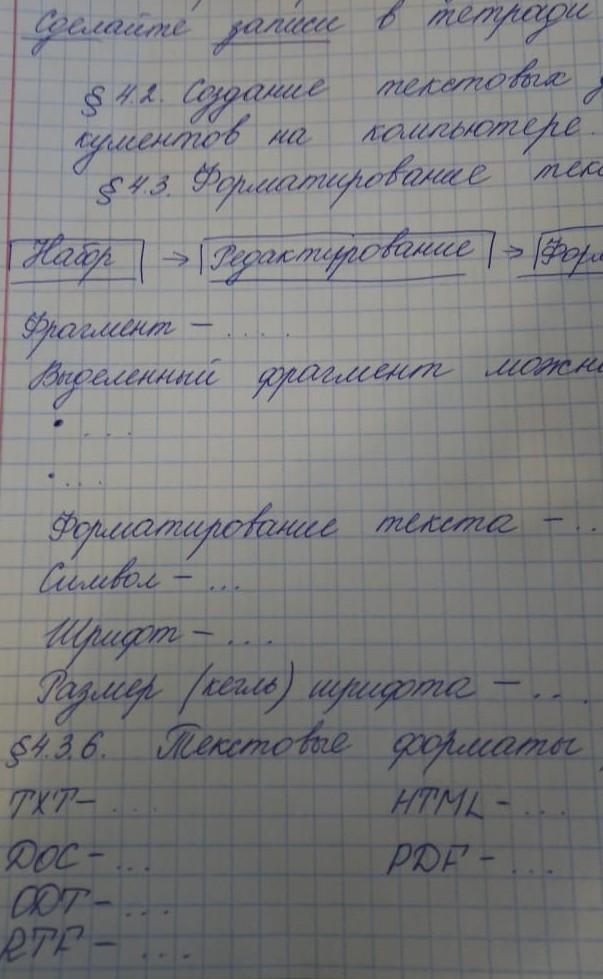 Сделайте записи в тетради
§ 4.2. Создание текстовых
кументов на компьютере.
§ 4.3. Форматирование текс
Набор → Редактирование → Форм
Фрагмент – . . . .
Выделенный фрагмент можно
• . . .
• . . .
Форматирование текста – . .
Символ – . . .
Шрифт – . . .
Размер (кегль) шрифта – . . .
§4.3.6. Текстовые форматы
TXT – . . . HTML – . . .
DOC – . . . PDF – . . .
ODT – . . .
RTF – . . .